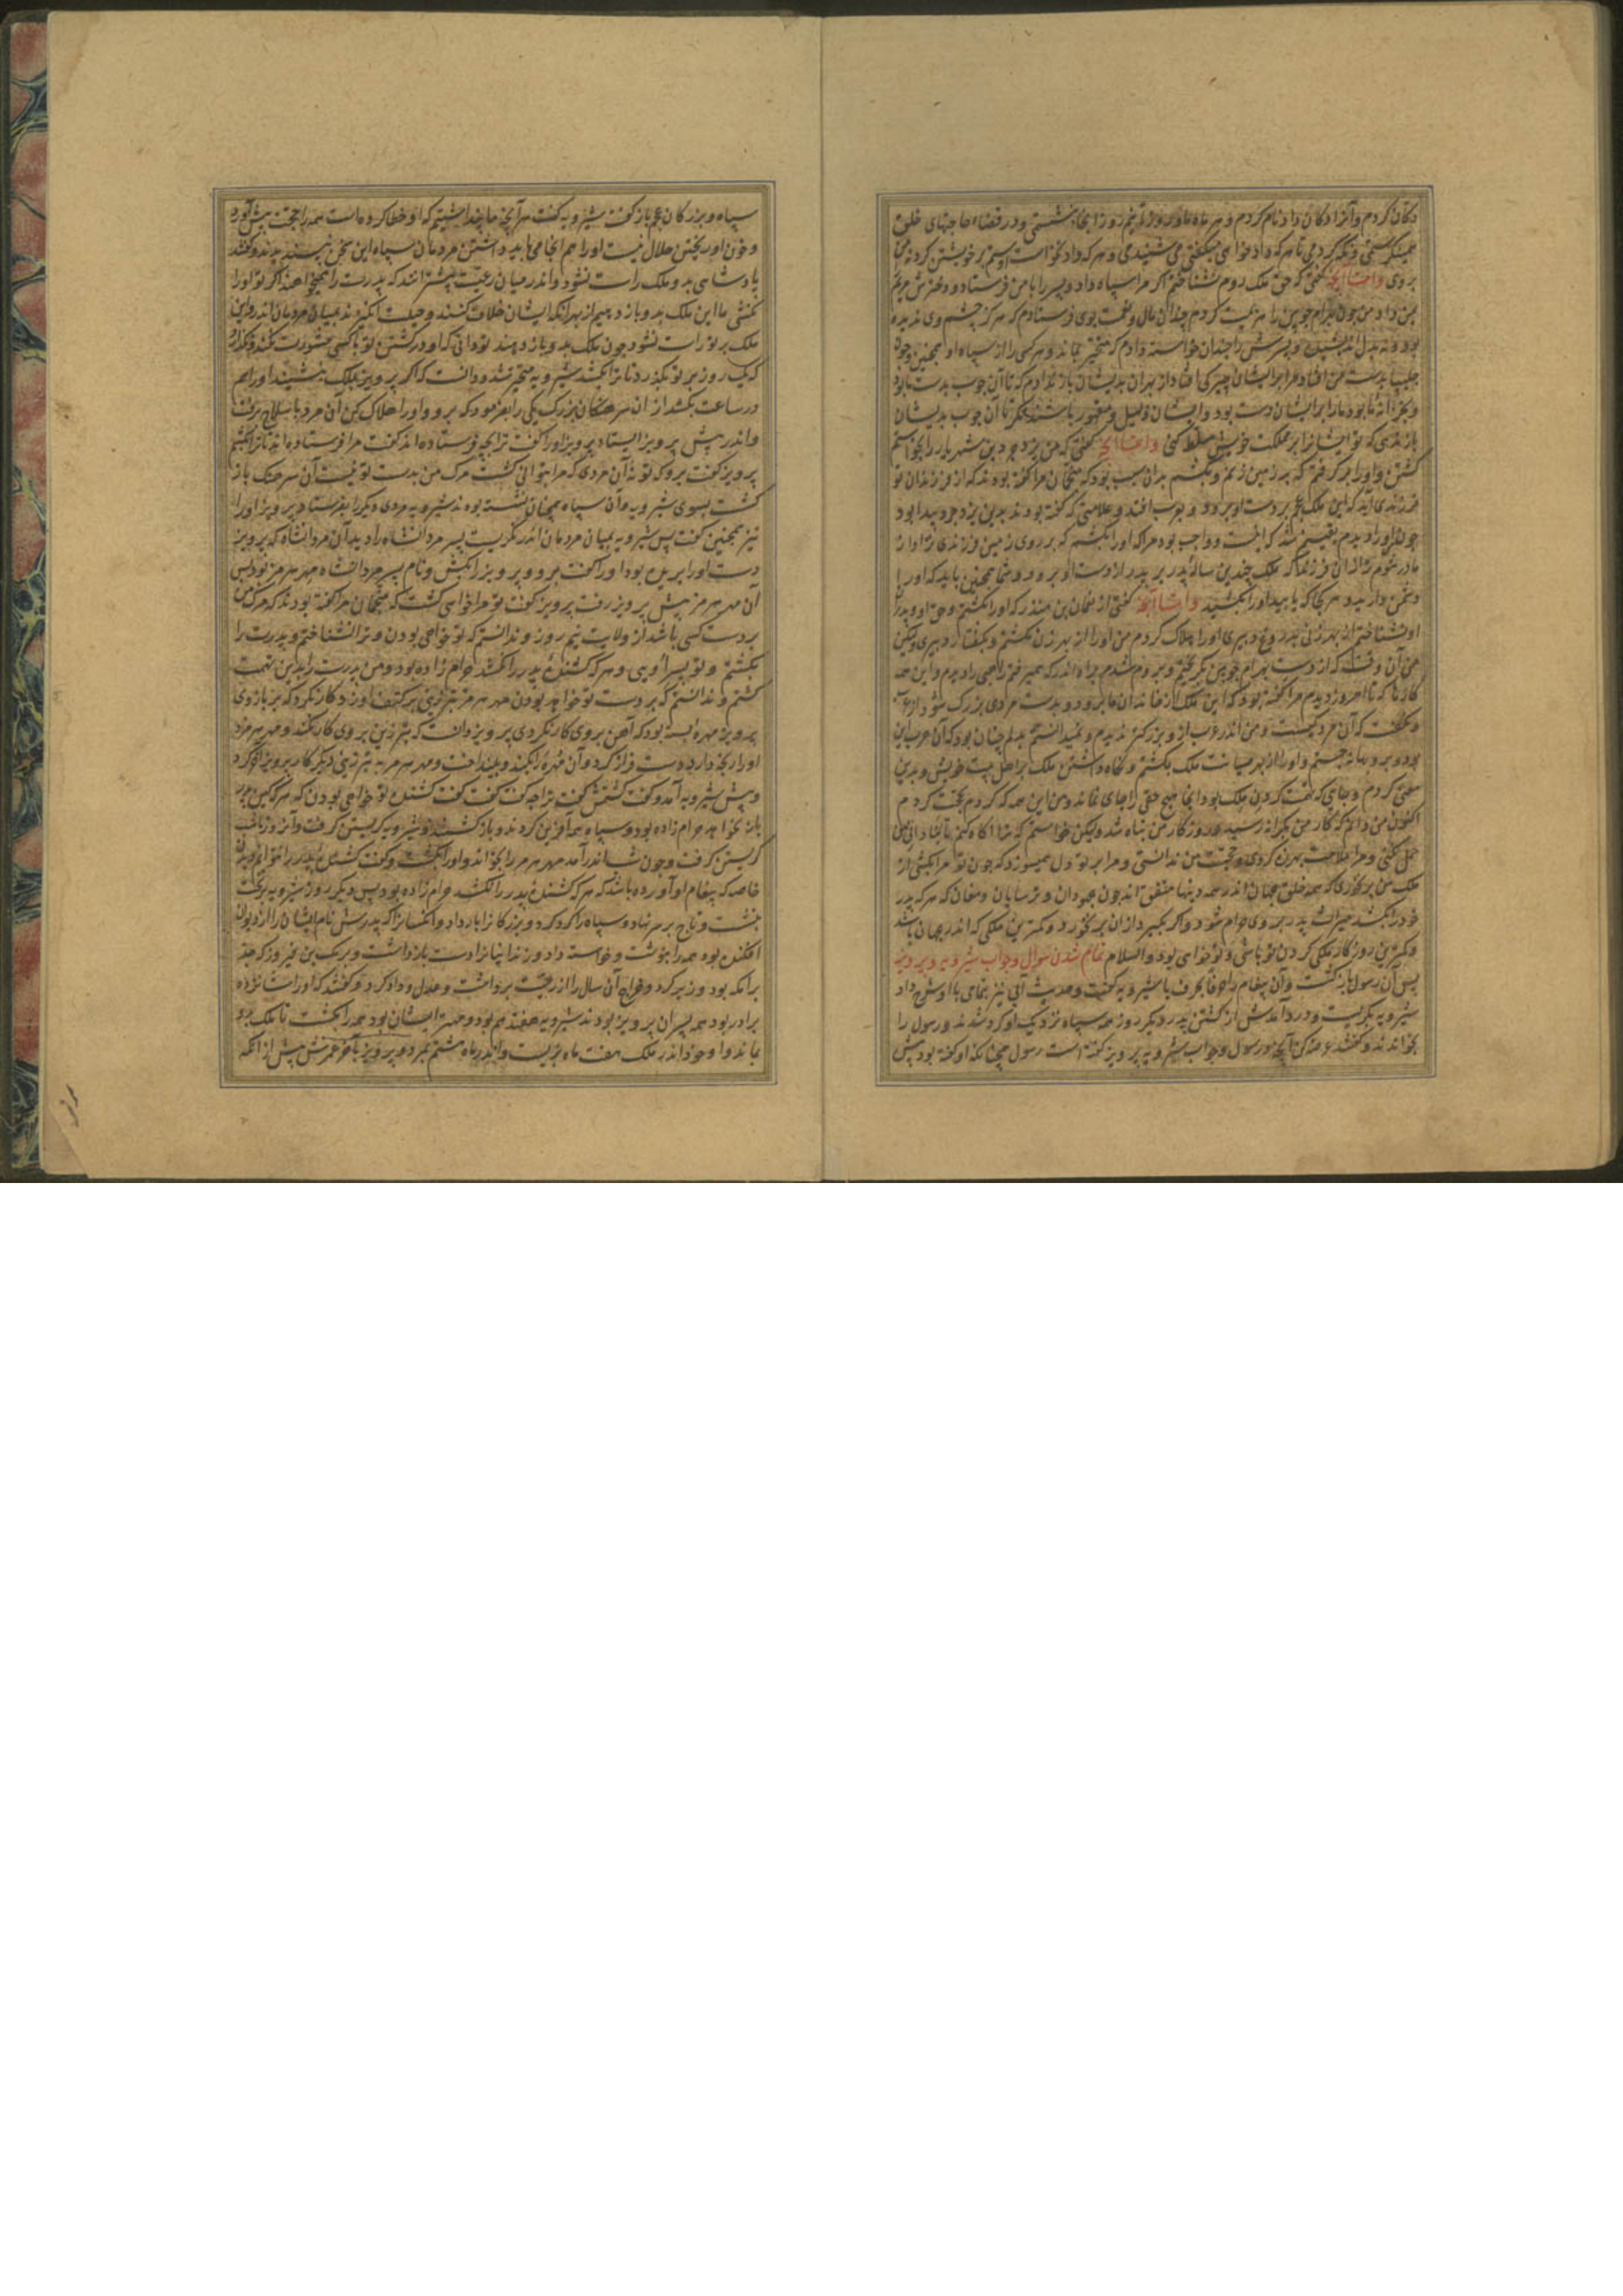 دکان کردم و آنرا دکان داد نام کردم و هر ماه بنشستمی و در قضاء حاجتهای خلق
بروی و اما آنچه گفتی که حق ملک روم نشناختم اگر مرا سپاه داد و پسر را با من فرستاد و دخترش مریم
بمن داد من چون بهرام چوبین را هزیمت کردم چندان مال و نعمت بوی فرستادم که هرگز چشم وی ندیده
بود و نه بدل اندیشیده و پسرش را چندان خواسته دادم که متحیر بماند و هر کسی را از سپاه او همچنین و چون
و بخزانهٔ ما بود ما را بر ایشان دست بود و ایشان ذلیل و مقهور باشند مگر تا آن چوب بدیشان
باز ندهی که تو ایشانرا بر مملکت خویش مسلط کنی و اما آنچه گفتی که من یزدجرد بن شهریار را بخواستم
کشتن و او را برگرفتم که بر زمین زنم و بکشم بدان سبب بود که منجمان مرا گفته بودند که از فرزندان تو
فرزندی آید که این ملک عجم بر دست او برود و بعرب افتد و علامتی که گفته بودند بدین یزدجرد پیدا بود
چون او را دیدم یقینم شد که اینست و واجب بود مرا که او را بکشم که بر روی زمین فرزندی نزاد از
مادر شوم‌تر از آن فرزند که ملک چندین ساله پدر بر پدر از دست او برود و شما همچنین باید که او را
دشمن دارید و هر کجا که یابید او را بکشید و اما آنچه گفتی از نعمان بن منذر که او را بکشتم و حق او و پدر
او نشناختم از بهر زنی بدروغ دبیری او را هلاک کردم من او را از بهر زن نکشتم و بگفتار دبیری ولیکن
من آن وقت که از دست بهرام چوبین بگریختم و بروم شدم براه اندر که همیرفتم راهبی را دیدم و این همه
کارها که تا امروز دیدم مرا گفته بود که این ملک از خاندان ما برود و بدست مردی بزرگ شود از عرب
و نگفت که آن مرد کیست و من اندر عرب از او بزرگتر ندیدم و نمیدانستم بدلم چنان بود که آن عرب این
بود و برو بهانه جستم و او را از بهر صیانت ملک بکشتم و نگاه داشتن ملک بر اهل بیت خویش و بدین
سعی کردم و بجایی که نعمت کردن ملک بود آنجا هیچ حق را جای نماند و من این همه که کردم بحجت کردم
اکنون من دانم که کار من بکرانه رسید و روزگار من تباه شد ولیکن خواستم که شما آگاه کنم تا بنادانی من
حمل نکنی و مرا ملامت بهرزه کردی و حجت من ندانستی و مرا بر تو دل همیسوزد که چون تو مرا بکشی از
ملک من برنخوری که همه خلق جهان اندر همه دینها متفق اند چون جهودان و ترسایان و مغان که هر که پدر
خود را بکشد میراث پدر بر وی حرام شود و اگر بگیرد از آن برنخورد و کمترین ملکی که اندر جهان باشد
و کمترین روزگار ملکی کردن تو باشی و تو خواهی بود والسلام تمام شدن سوال و جواب شیرویه و پرویز
پس آن رسول بازگشت و آن پیغام را حرفا بحرف با شیرویه گفت و حدیث آبی نیز بتمامی با او شرح داد
شیرویه بگریست و درد آمدش از کشتن پدر دیگر روز همه سپاه نزدیک او گرد شدند و رسول را
بخواندند و گفتند عرضه کن تا آنچه رسول و جواب شیرویه پرویز گفته است رسول همچنانکه او گفته بود پیش
سپاه و بزرگان عجم باز گفت شیرویه گفت هر آنچه ما پنداشتیم که او خطا کرده است همه را حجت پیش آورد
و خون او ریختن حلال نیست او را هم آنجا می باید داشتن مردمان سپاه این سخن نپسندیدند و گفتند
پادشاهی بدو ملک راست نشود و اندر میان رعیت بیشتر آنند که پدرت را همیخواهند اگر تو او را
نکشی ما این ملک بدو باز دهیم از بهر آنکه ایشان خلاف کنند و حیلت انگیزند بمیان مردمان اندر و این
ملک بر تو راست نشود چون ملک بدو باز دهند تو دانی که او در کشتن تو با کسی مشورت نکند و نگذارد
که یک روز بر تو بگذرد تا ترا بکشد شیرویه متحیر شد و دانست که اگر پرویز بملک بنشیند او را هم
در ساعت بکشد از آن سرهنگان بزرگ یکی را بفرمود که برو و او را هلاک کن آن مرد با سلاح برفت
و اندر پیش پرویز ایستاد پرویز او را گفت ترا بچه فرستاده اند گفت مرا فرستاده اند تا ترا بکشم
پرویز گفت برو که تو نه آن مردی که مرا بتوانی کشت مرگ من بدست تو نیست آن سرهنگ باز
گشت بسوی شیرویه و آن سپاه همچنان نشسته بودند شیرویه مردی دیگر را بفرستاد پرویز او را
نیز همچنین گفت پس شیرویه بمیان مردمان اندر نگریست پسر مردانشاه را دید آن مردانشاه که پرویز
دست او را بریده بود او را گفت برو و پرویز را بکش و نام پسر مردانشاه مهر هرمز بود پس
آن مهر هرمز پیش پرویز رفت پرویز گفت تو مرا خواهی کشت که منجمان مرا گفته بودند که مرگ من
بر دست کسی باشد از ولایت نیمروز و ندانستم که تو خواهی بودن و ترا نشناختم و پدرت را
بکشتم و تو پسر اویی و هر که کشندهٔ پدر را نکشد حرام زاده بود و من پدرت را بدین تهمت
کشتم و ندانستم که بر دست تو خواهد بودن مهر هرمز تبرزینی بر کتف او زد کار نکرد که بر بازوی
پرویز مهره بسته بود که آهن بر وی کار نکردی پرویز دانست که تبرزین بر وی کار نکند و مهر هرمز
او را رنجه دارد دست فراز کرد و آن مهره بکند و بینداخت و مهر هرمز به تبرزینی دیگر کار پرویز آخر کرد
و پیش شیرویه آمد و گفت کشتمش گفت ترا چه گفت گفت گفت کشندهٔ تو خواهی بودن که هر که کین پدر
باز نخواهد حرام زاده بود و سپاه همه آفرین کردند و باز گشتند و شیرویه گریستن گرفت و آنروز تا شب
گریستن گرفت و چون شب اندر آمد مهر هرمز را بخواند و او را بکشت و گفت کشندهٔ پدر را نتوانم دیدن
خاصه که پیغام او آورده باشد که هر که کشندهٔ پدر را نکشد حرام زاده بود پس دیگر روز شیرویه بر تخت
بنشست و تاج بر سر نهاد و سپاه را گرد کرد و بزرگان را بار داد و آنکسانرا که پدرش نام ایشان را از دیوان
افکنده بود همه را بنوشت و خواسته داد و زندانیانرا دست باز داشت و برمک بن فیروز که جد
برامکه بود وزیر کرد و خراج آن سال را از رعیت برداشت و عدل و داد کرد و گفتند که او را شانزده
برادر بود همه پسران پرویز بودند شیرویه هفتدهم بود و مهتر ایشان بود همه را بکشت تا ملک بدو
بماند و او خود اندر ملک هفت ماه بزیست و اندر ماه هشتم بمرد و پرویز بآخر عمرش پیش از آنکه